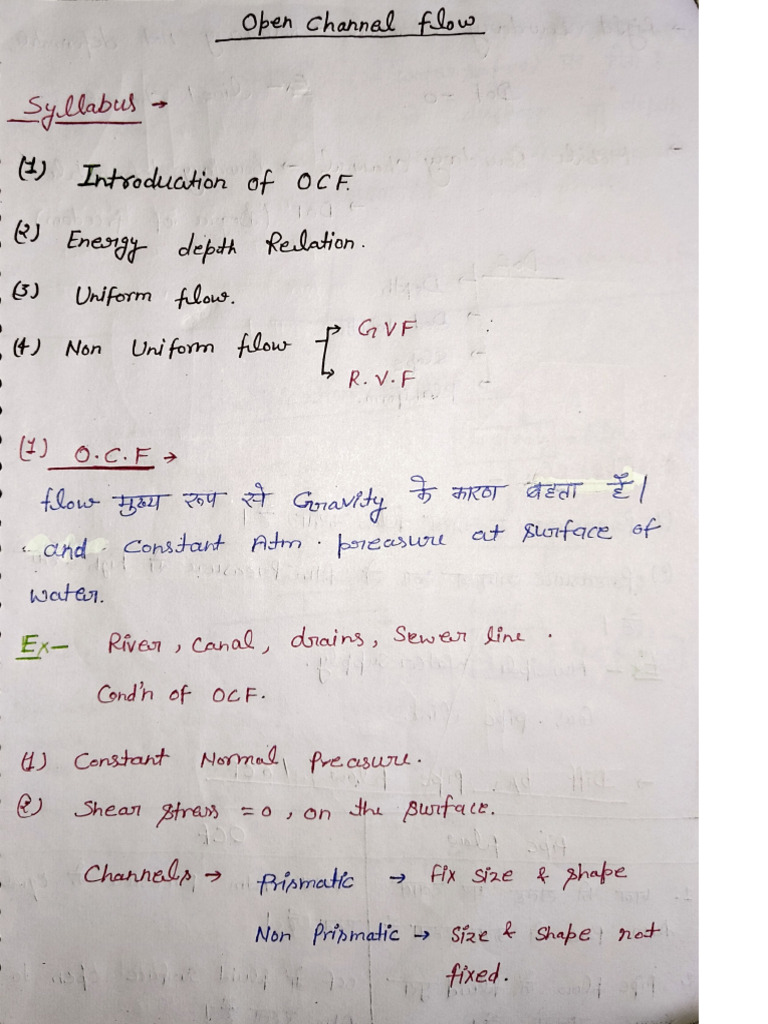 Open Channel flow
Syllabus →
(1) Introduction of OCF.
(2) Energy depth Relation.
(3) Uniform flow.
(4) Non Uniform flow → GVF
→ R.V.F
(1) O.C.F →
flow मुख्य रूप से Gravity के कारण बहता है।
and constant Atm. preasure at surface of
water.
Ex- River, canal, drains, Sewer line.
Cond'n of OCF.
(1) Constant Normal Preasure.
(2) Shear stress = 0, on the surface.
Channels → Prismatic → fix size & shape
Non Prismatic → Size & shape not
fixed.